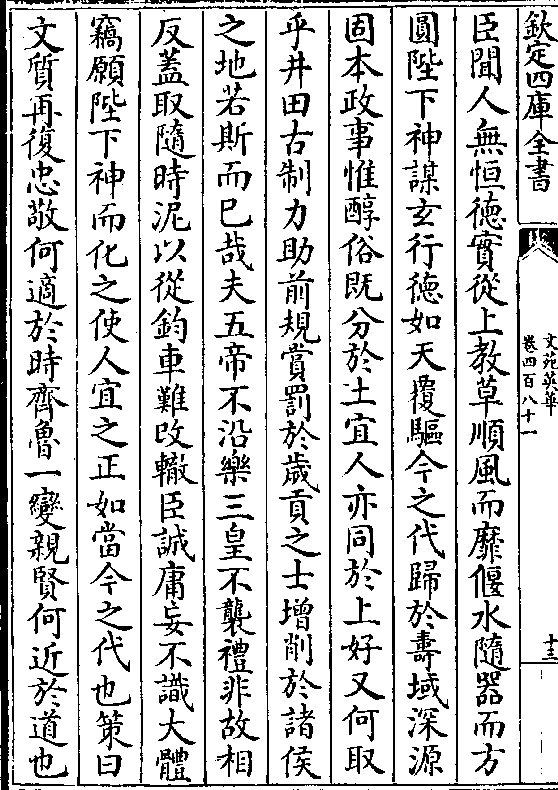 欽定四庫全書
文苑英華
卷四百八十一
十三
臣聞人無恒德實從上教草順風而靡偃水隨器而方
圓陛下神謀玄行德如天覆驅今之代歸於壽域深源
固本政事惟醇俗既分於土宜人亦同於上好又何取
乎井田古制力助前規賞罰於歲貢之士增削於諸侯
之地若斯而已哉夫五帝不沿樂三皇不襲禮非故相
反蓋取隨時泥以從鈞車難改轍臣誠庸妄不識大體
竊願陛下神而化之使人宜之正如當今之代也策曰
文質再復忠敬何適於時齊魯一變親賢何近於道也